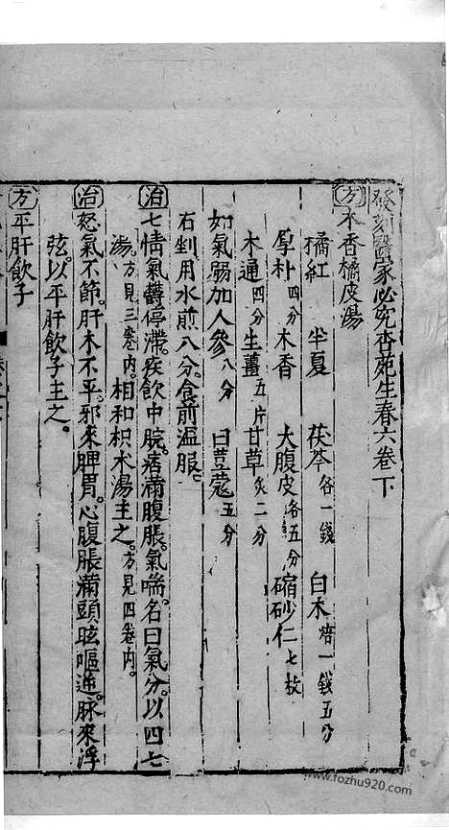 癸刻醫家必究杏苑生春六卷下
方木香橘皮湯
橘紅 半夏 茯苓各一錢 白术焙一錢五分
厚朴四分 木香 大腹皮各五分 縮砂仁七枚
木通四分 生薑五片 甘草炙二分
如氣弱加人參八分 白荳蔻五分
右剉用水煎八分食前温服
治七情氣欝停滯痰飲中脘痞滿腹脹氣喘名曰氣分以四七
湯方見三卷內相和枳术湯主之方見四卷內
治怒氣不節肝木不平邪來脾胃心腹脹滿頭眩嘔逆脉來浮
弦以平肝飲子主之
方平肝飲子
www.fozhu920.com